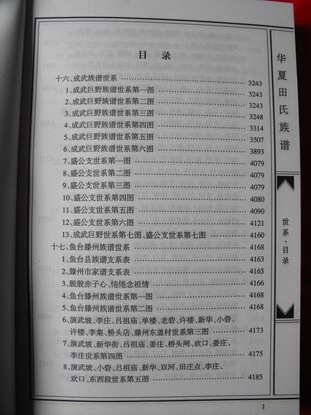 目录
十六、成武族谱世系 3243
1、成武巨野族谱世系第一图 3243
2、成武巨野族谱世系第二图 3243
3、成武巨野族谱世系第三图 3248
4、成武巨野族谱世系第四图 3314
5、成武巨野族谱世系第五图 3507
6、成武巨野族谱世系第六图 3893
7、盛公支世系第一图 4079
8、盛公支世系第二图 4079
9、盛公支世系第三图 4079
10、盛公支世系第四图 4080
11、盛公支世系第五图 4090
12、盛公支世系第六图 4121
13、成武巨野世系第七图、盛公支世系第七图 4160
十七、鱼台滕州族谱世系 4168
1、鱼台县族谱支系表 4168
2、滕州市家谱支系表 4168
3、殷殷赤子心、惓惓念祖情 4168
4、鱼台滕州族谱世系第一图 4168
5、鱼台滕州族谱世系第二图 4168
6、演武坡、李庄、吕祖庙、单楼、老砦、许楼、新华、小砦、
许楼、李集、桥头店、滕州东盖村世系第三图 4173
7、演武坡、新华街、吕祖庙、姜庄、桥头闸、欢口、姜庄、
李庄世系第四图 4175
8、演武坡、小砦、吕祖庙、新华、双河、田庄点、李庄、
欢口、东西段世系第五图 4185
华夏田氏族谱
世系·目录
1